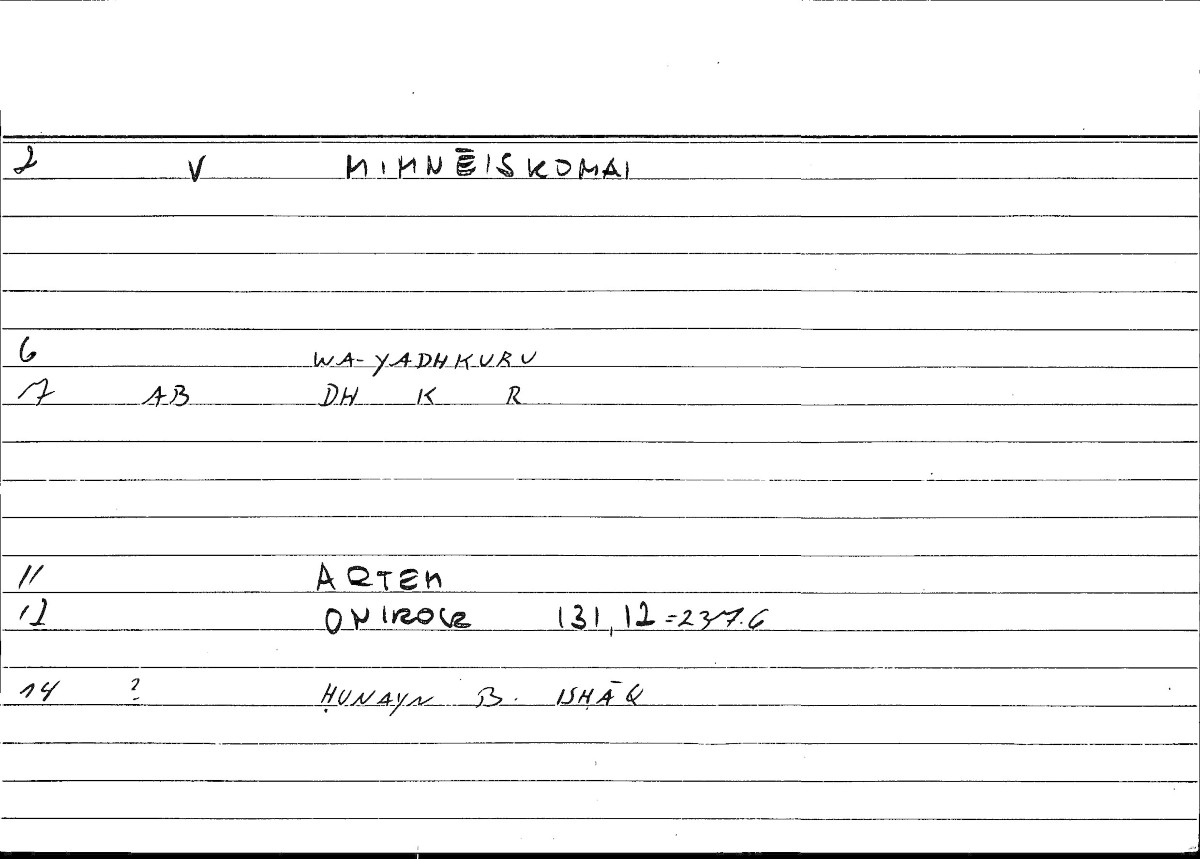 2 V MIMNĒISKOMAI
6 WA-YADHKURU
7 AB DH K R
11 ARTEM
12 ONIROCR 131,12 =237.6
14 ? ḤUNAYN B. ISḤĀQ